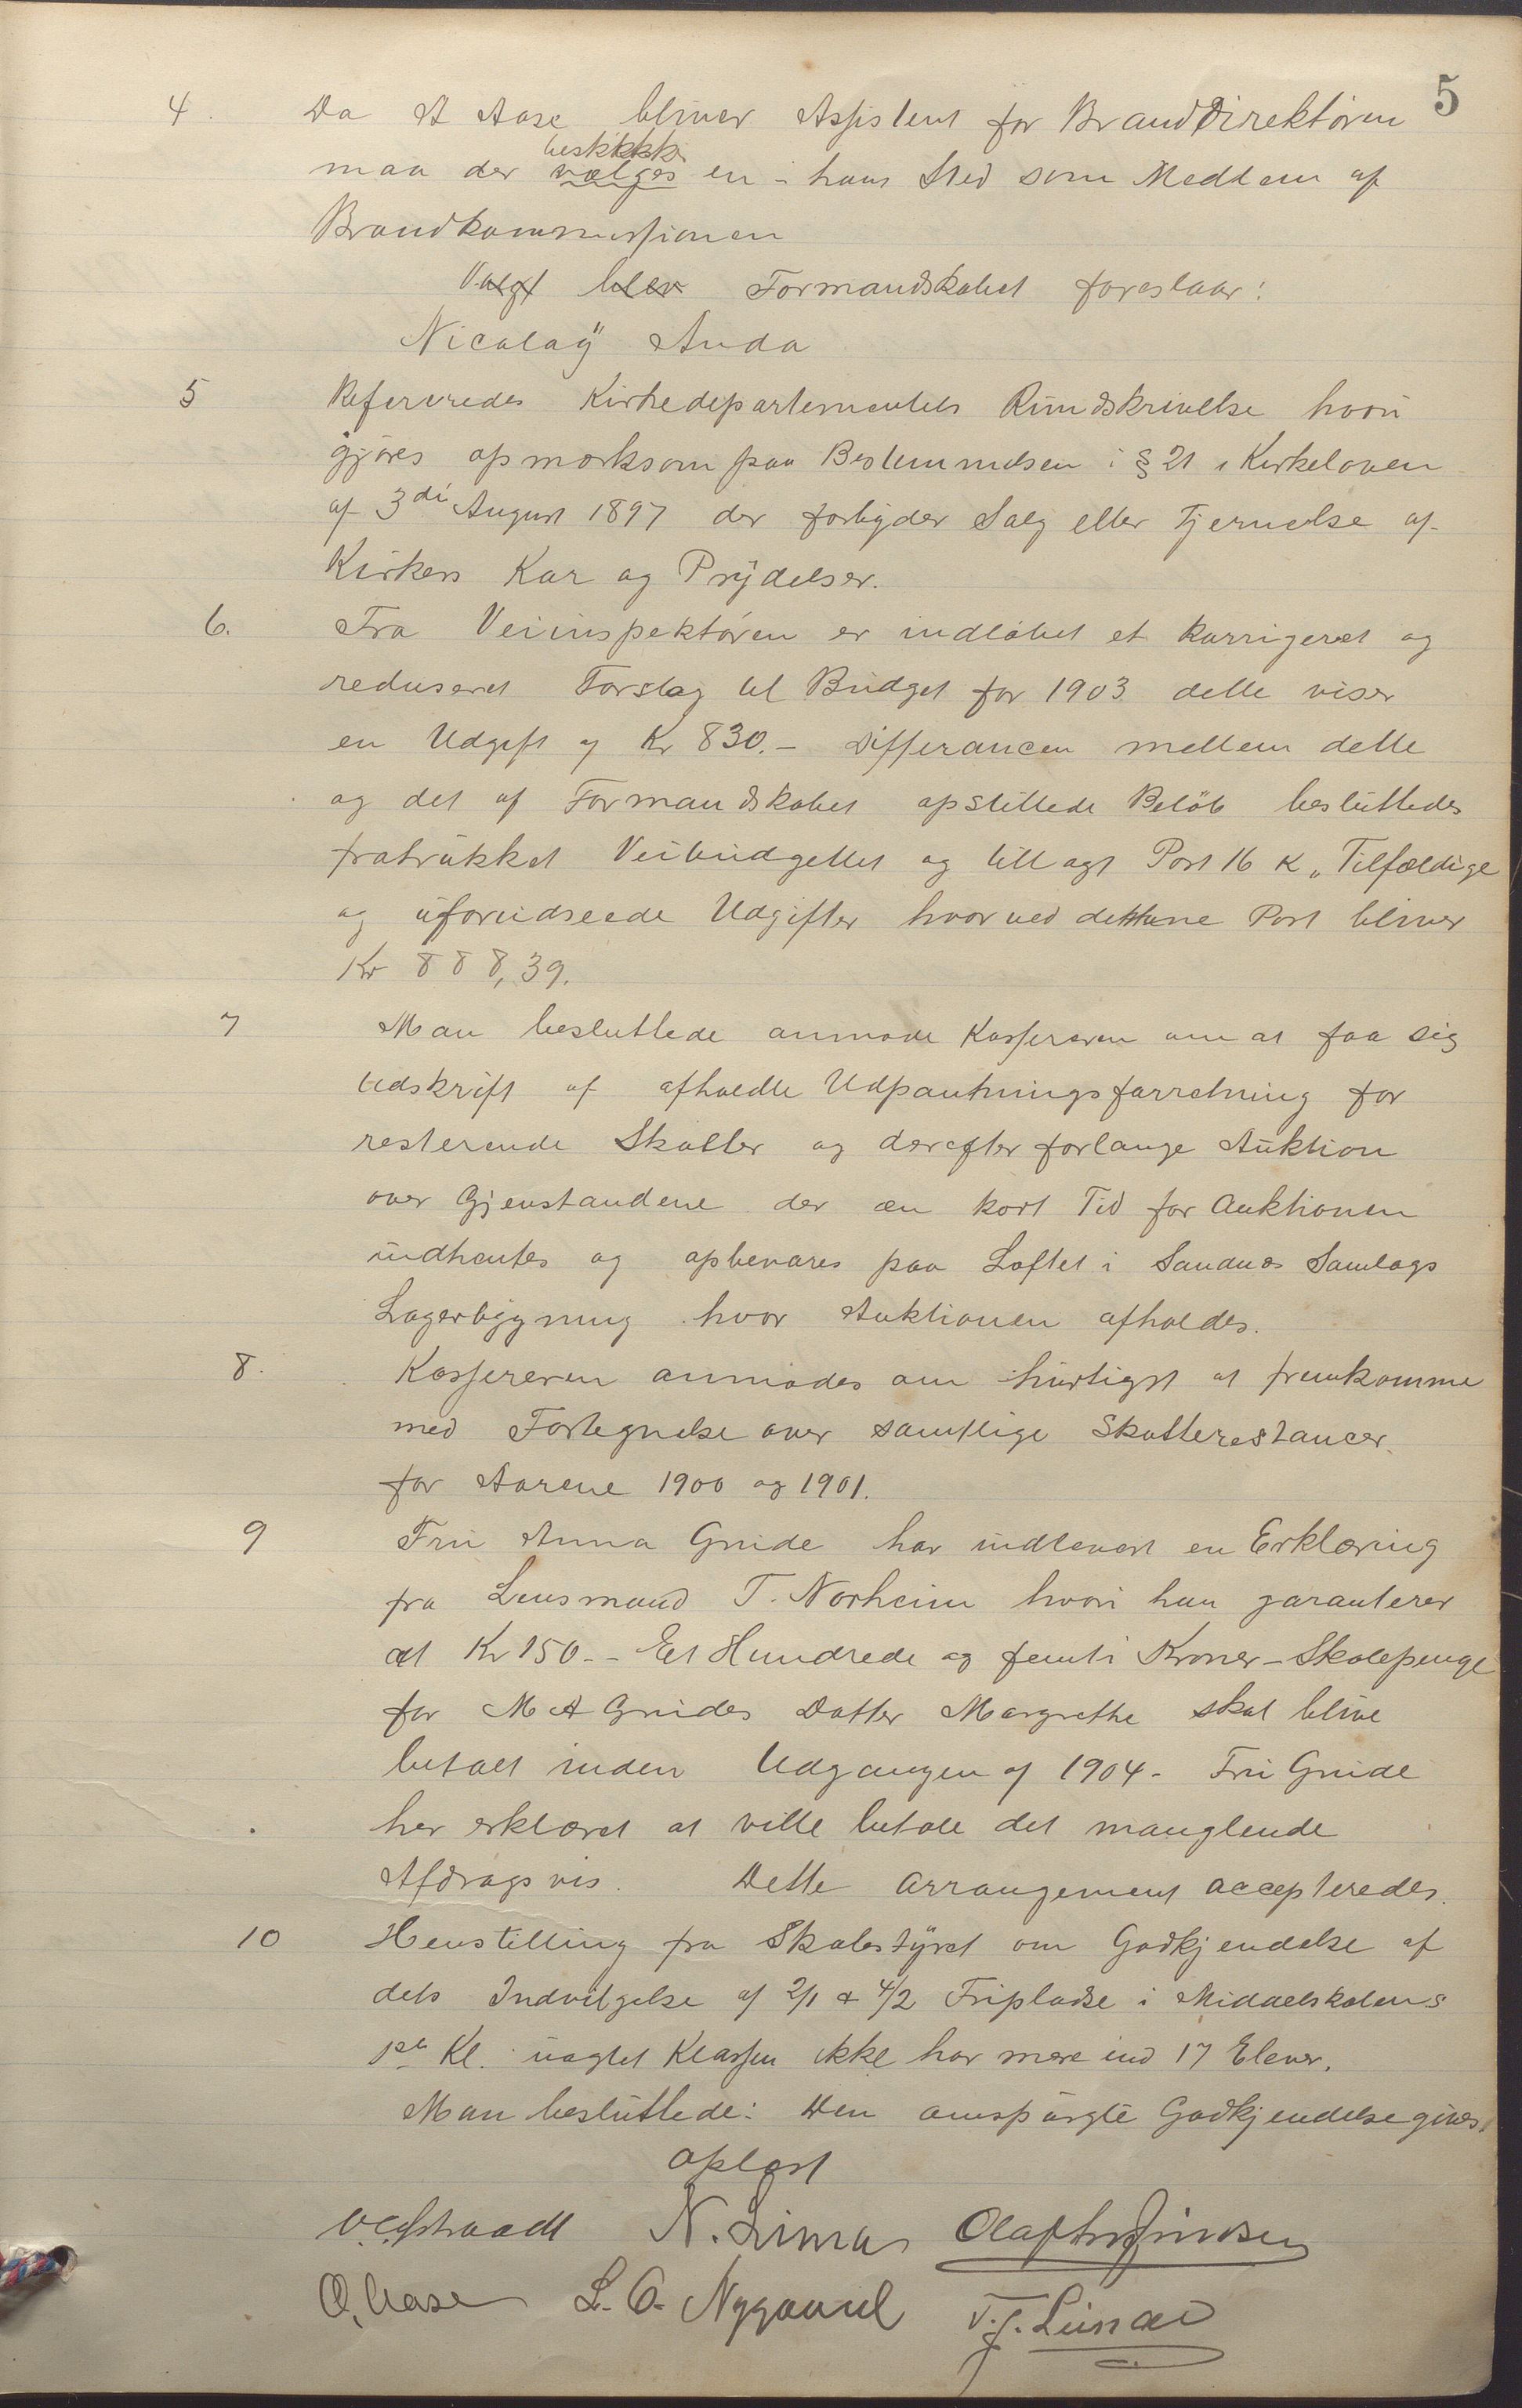 5
4. Da A Aase bliver Assistent for Branddirektøren
maa der vælges en i hans Sted som Medlem af
Brandkommissionen
Valgt blev Formandskabet foreslaar:
Nicolaÿ Anda
5 Refereredes Kirkedepartementets Rundskrivelse hvori
gjøres opmærksom paa Bestemmelsen i § 21 i Kirkeloven
af 3di August 1897 der forbyder Salg eller Fjernelse af
Kirkens Kar og Prÿdelser.
6. Fra Veiinspektøren er indløbet et korrigeret og
reduseret Forslag til Budget for 1903 dette viser
en Udgift af Kr 830.- Differancen mellem dette
og det af Formandskabet opstillede Beløb besluttedes
fratrukket Veibudgettet og tillagt Post 16 K „Tilfældige
og uforudseede Udgifter hvorved denne Post bliver
Kr 888,39.
7 Man besluttede anmode Kassereren om at faa sig
Udskrift af afholdte Udpantningsforretning for
resterende Skatter og derefter forlange Auktion
over Gjenstandene der en kort Tid før Auktionen
indhentes og opbevares paa Loftet i Sandnes Samlags
Lagerbygning hvor Auktionen afholdes.
8. Kassereren anmodes om hurtigst at fremkomme
med Fortegnelse over samtlige Skatterestancer
for Aarene 1900 og 1901.
9 Fru Anna Grude har indleveret en Erklæring
fra Lensmand T. Norheim hvori han garanterer
at Kr 150.- Et Hundrede og femti Kroner - Skolepenge
for M A Grudes Datter Margrethe skal blive
betalt inden Udgangen af 1904 - Fru Grude
har erklæret at ville betale det manglende
Afdragsvis. Dette Arrangement accepteredes.
10 Henstilling fra Skolestÿret om Godkjendelse af
dets Indvilgelse af 2/1 & 4/2 Fripladse i Middelskolens
1ste Kl. uagtet Klassen ikke har mere end 17 Elever.
Man besluttede: Den omspurgte Godkjendelse gives.
Oplæst
N. Lima
O. Aase L. O. Nygaard T. J. Lunde